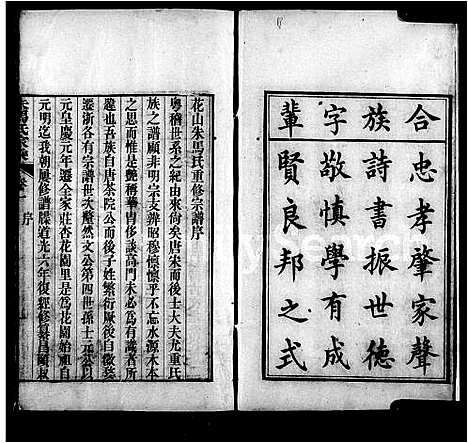 合族字輩
忠孝肇家聲
詩書振世德
敬慎學有成
賢良邦之式
花山朱馬氏重修宗譜序
粵稽世系之紀由來尚矣唐宋而後士大夫尤重氏
族之譜顧非明宗支辨昭穆懷懷乎不忘水源本本
之思而惟是艷稱華胄侈談高門未必為有識者所
違也吾族自唐茶院公而後子姓繁衍厥後自徽婺
遷浙各有宗譜世次釐然文公第四世孫十三公
元皇慶元年遷全家莊杏花園里是為花園始祖自
元明迄我朝屢修譜牒道光六年復經修纂
序